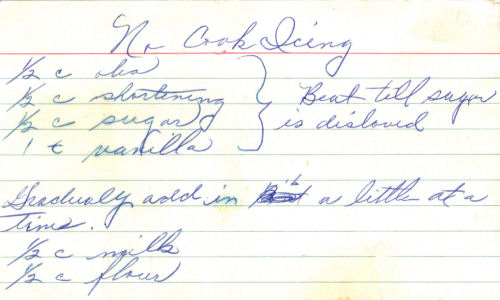 No Cook Icing
½ c oleo
½ c shortening
½ c sugar
1 t vanilla
Beat till sugar
is disloved
Gradually add in a little at a
time.
½ c milk
½ c flour